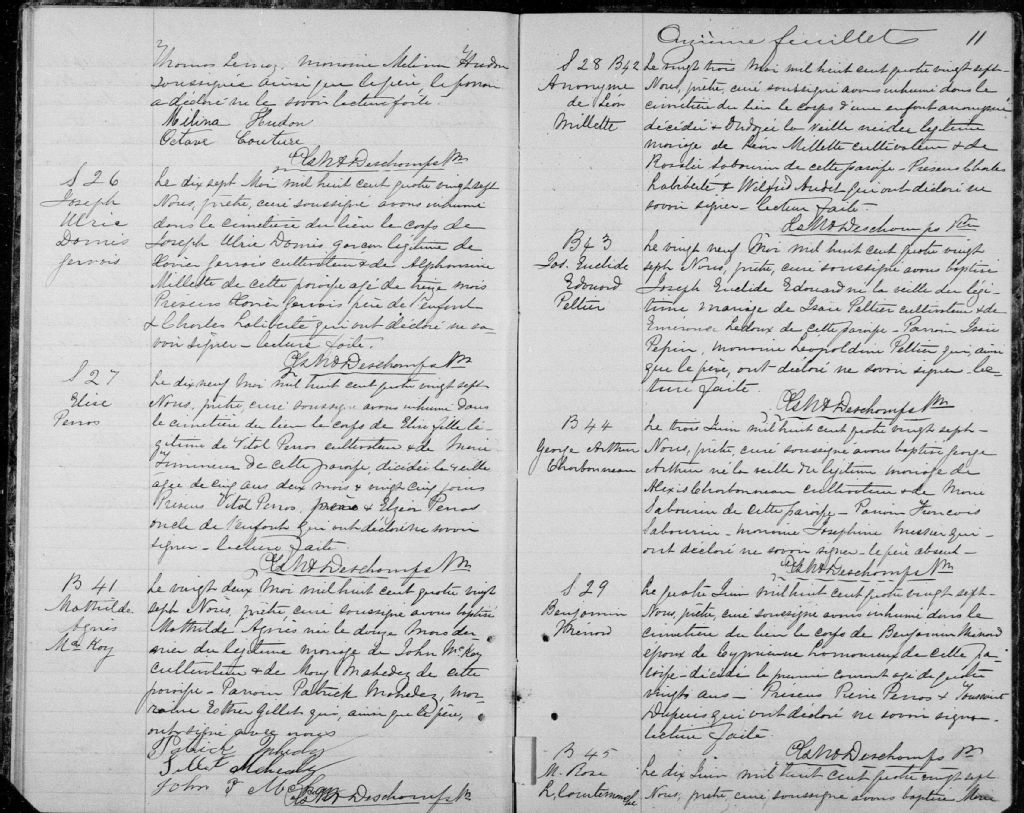 Thomas Lemay, marraine Mélina Hudon
soussignée ainsi que le père, le parrain
a déclaré ne le savoir lecture faite
Mélina Hudon
Octave Couture
Chs N. Deschamps Ptre
S 26
Joseph
Ulric
Damis
Gervais
Le dix sept Mai mil huit cent quatre vingt sept
Nous, prêtre, curé soussigné avons inhumé
dans le cimetière du lieu le corps de
Joseph Ulric Damis garçon légitime de
Xavier Gervais cultivateur & de Alphonsine
Millette de cette paroisse agé de treize mois
Présens Xavier Gervais père de l'enfant
& Charles Laliberté qui ont déclaré ne sa-
voir signer – lecture faite.
Chs N. Deschamps Ptre
S 27
Elise
Perras
Le dix neuf Mai mil huit cent quatre vingt sept
Nous, prêtre, curé soussigné avons inhumé dans
le cimetière du lieu le corps de Elise fille lé-
gitime de Vital Perras cultivateur & de Marie
de cette paroisse, décédée la veille
agée de cinq ans deux mois & vingt cinq jours
Présens Vital Perras, père & Elzéar Perras
oncle de l'enfant qui ont déclaré ne savoir
signer – lecture faite.
Chs N. Deschamps Ptre
B 41
Mathilde
Agnès
Mc Koy
Le vingt deux Mai mil huit cent quatre vingt
sept Nous, prêtre, curé soussigné avons baptisé
Mathilde Agnès née le douze Mars der
nier du légitime mariage de John McKoy
cultivateur & de Mary Mahedez de cette
paroisse – Parrain Patrick Mahedez, mar
raine Esther Gillet qui, ainsi que le père,
ont signé avec nous
Patrick
Gillet
John P McKoy
Chs N. Deschamps Ptre
Onzième feuillet 11
S 28 B 42
Anonyme
de Léon
Millette
Le vingt trois Mai mil huit cent quatre vingt sept –
Nous, prêtre, curé soussigné avons inhumé dans le
cimetière du lieu le corps d'une enfant anonyme
décédée & ondoyée la veille née du légitime
mariage de Léon Millette cultivateur & de
Rosalie Sabourin de cette paroisse – Présens Charles
Laliberté & Wilfrid Audet qui ont déclaré ne
savoir signer – lecture faite.
Chs N. Deschamps Ptre
B 43
Jos. Euclide
Edouard
Peltier
Le vingt neuf Mai mil huit cent quatre vingt
sept Nous, prêtre, curé soussigné avons baptisé
Joseph Euclide Edouard né la veille du légi-
time mariage de Isaïe Peltier cultivateur & de
Ledoux de cette paroisse – Parrain Isaïe
Pepin, marraine Léopoldine Peltier qui, ainsi
que le père, ont déclaré ne savoir signer – lec-
ture faite
Chs N. Deschamps Ptre
B 44
George Arthur
Charbonneau
Le trois Juin mil huit cent quatre vingt sept –
Nous, prêtre, curé soussigné avons baptisé George
Arthur né la veille du légitime mariage de
Alexis Charbonneau cultivateur & de Marie
Sabourin de cette paroisse – Parrain François
Sabourin – marraine Josephine Messier qui –
ont déclaré ne savoir signer – le père absent –
Chs N. Deschamps Ptre
S 29
Benjamin
Ménard
Le quatre Juin mil huit cent quatre vingt sept –
Nous, prêtre, curé soussigné avons inhumé dans le
cimetière du lieu le corps de Benjamin Ménard
époux de Cyprienne Lamoureux de cette pa-
roisse – décédé le premier courant agé de quatre
vingts ans – Présens Pierre Perras & Toussaint
Dupuis qui ont déclaré ne savoir signer –
lecture faite.
Chs N. Deschamps Ptre
B 45
M. Rose
L. Courtemanche
Le dix Juin mil huit cent quatre vingt sept
Nous, prêtre, curé soussigné avons baptisé Marie